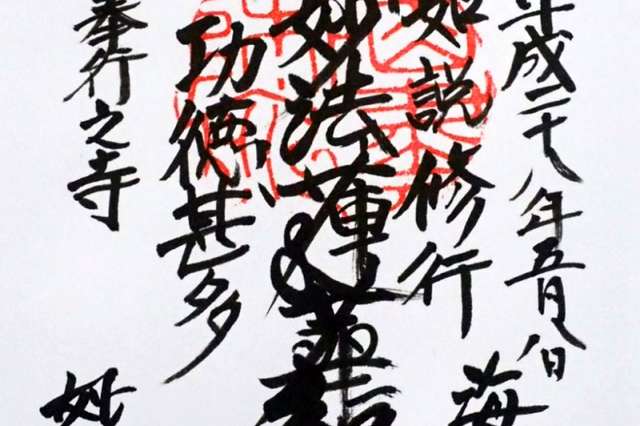 平成二十八年五月八日
如説修行
海
妙法蓮華経
功徳甚多
奉行之寺
妙